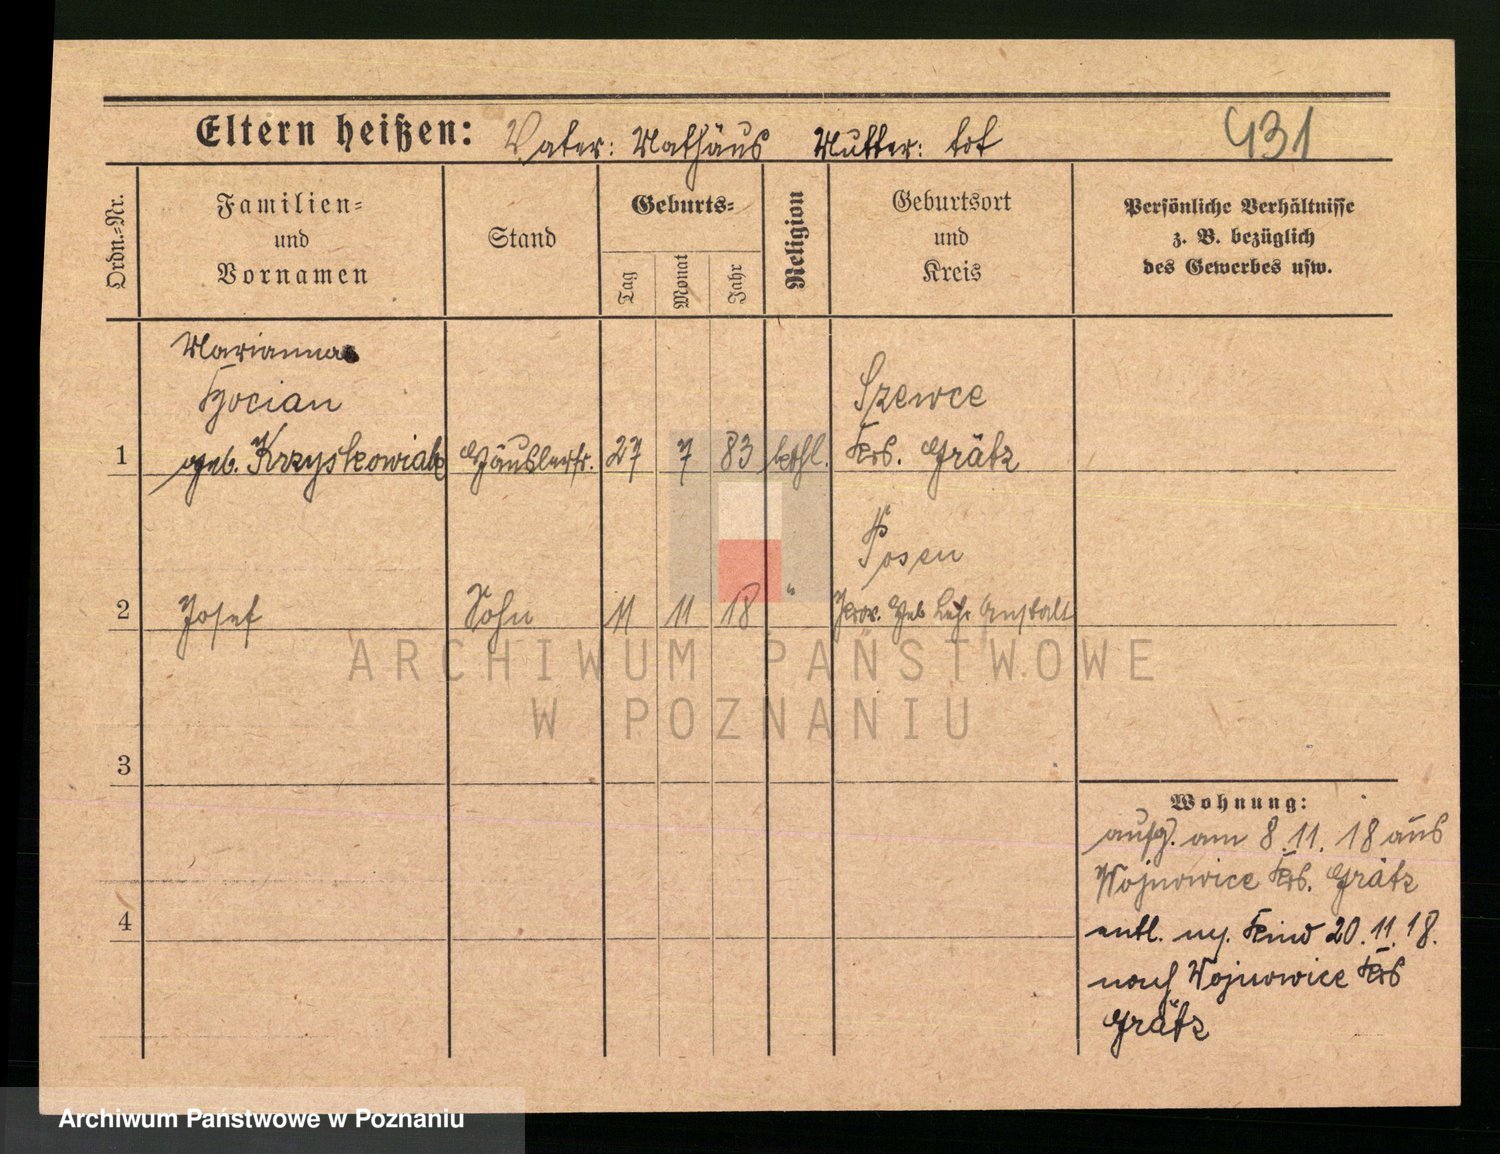 Eltern heißen: Vater: Mathäus Mutter: tot
431
Ordn.-Nr.
Familien-
und
Vornamen
Stand
Geburts-
Tag
Monat
Jahr
Religion
Geburtsort
und
Kreis
Persönliche Verhältnisse
z. B. bezüglich
des Gewerbes usw.
Marianna
Kocian
1 geb. Krzyskowiak Häuslerfr. 27 7 83 kathl. Szewce
Krs. Grätz
2 Josef Sohn 11 11 18 " Posen
Prov. Heb Lehr Anstalt
3
4
Wohnung:
aufg. am 8.11.18 aus
Wojnowice Krs. Grätz
entl. m. Kind 20.11.18.
nach Wojnowice Krs
Grätz
ARCHIWUM PAŃSTWOWE
W POZNANIU
Archiwum Państwowe w Poznaniu